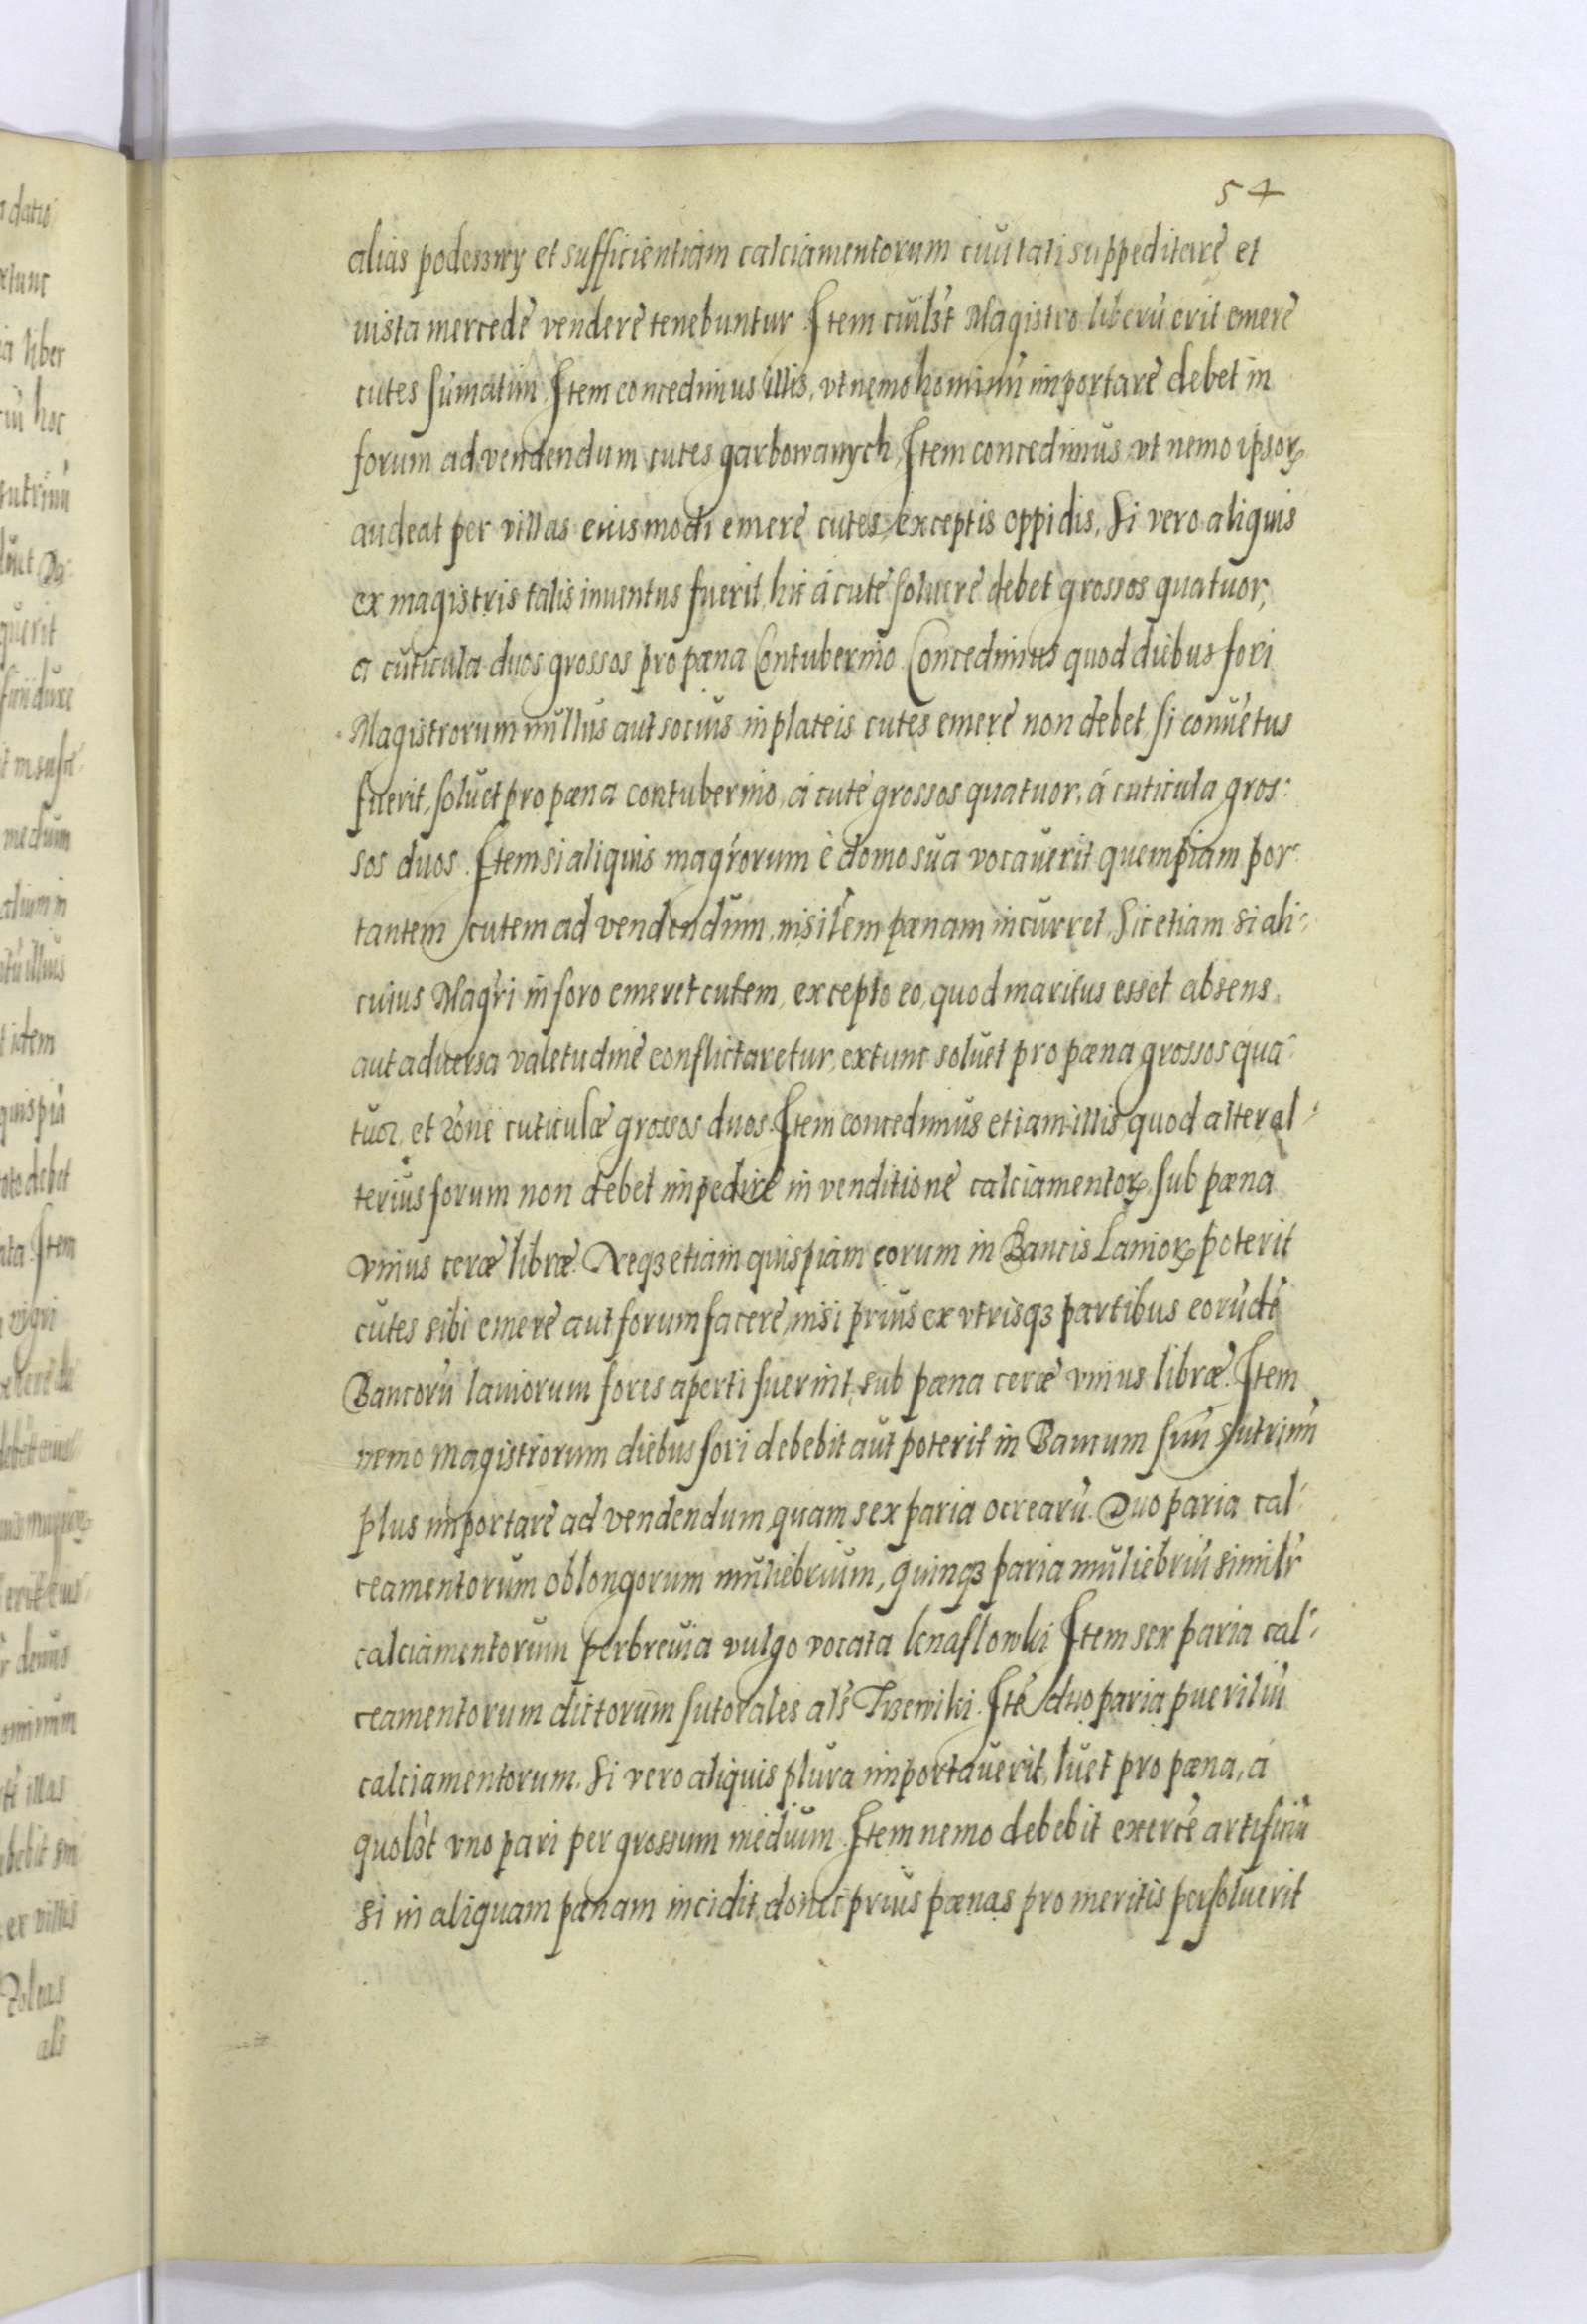 54
alias podeszwy et sufficientiam calciamentorum ciuitati suppeditare et
iusta mercede vendere tenebuntur. Item cuilỡt Magistro liberũ erit emere
cutes sũmatim. Item concedimus illis, vt nemo hominũ importare debet in
forum ad vendendum cutes garbowanych, Item concedimus vt nemo ipsoꝝ
audeat per villas eiusmodi emere cutes, exceptis oppidis, Si vero aliquis
ex magistris talis inuentus fuerit, hic á cute soluere debet grossos quatuor,
a cuticula duos grossos pro pæna Contubernio. Concedimus quod diebus fori
Magistrorum nullus aut socius in plateis cutes emere non debet, si conuẽtus
fuerit, soluet pro pæna contubernio, á cute grossos quatuor, á cuticula gros:
sos duos. Item si aliquis magr̃orum è domo sua vocauerit quempiam por:
tantem cutem ad vendendum, ir̃silem pænam incurret, Sic etiam si ali:
cuius Magr̃i in foro emeret cutem, excepto eo, quod maritus esset absens
aut aduersa valetudine conflictaretur, extunc soluet pro pæna grossos qua:
tuor, et rõne cuticulæ grossos duos. Item concedimus etiam illis quod alter al:
terius forum non debet impedire in venditione calciamentoꝝ, sub pæna
vnius ceræ libræ. Neqȝ etiam quispiam eorum in Bancis Lanioꝝ poterit
cutes sibi emere aut forum facere, nisi prius ex vtrisqȝ partibus eorũdẽ
Bancorũ laniorum fores aperti fuerint, sub pæna ceræ vnius libræ. Item
nemo magistrorum diebus fori debebit aut poterit in Bancum suũ sutrinũ
plus importare ad vendendum, quam sex paria ocrearũ. Duo paria cal:
ceamentorum oblongorum muliebrium, quinqȝ paria muliebriũ similr̃
calciamentorum perbreuia vulgo vocata knaflowki Item sex paria cal:
ceamentorum dictorum sutorales als̃ Trzewiki. Itẽ duo paria pueriliũ
calciamentorum. Si vero aliquis plura importauerit, luet pro pæna, á
quolỡt vno pari per grossum medium. Item nemo debebit exercẽ artificiũ
si in aliquam pænam incidit, donec prius pænas pro meritis persoluerit